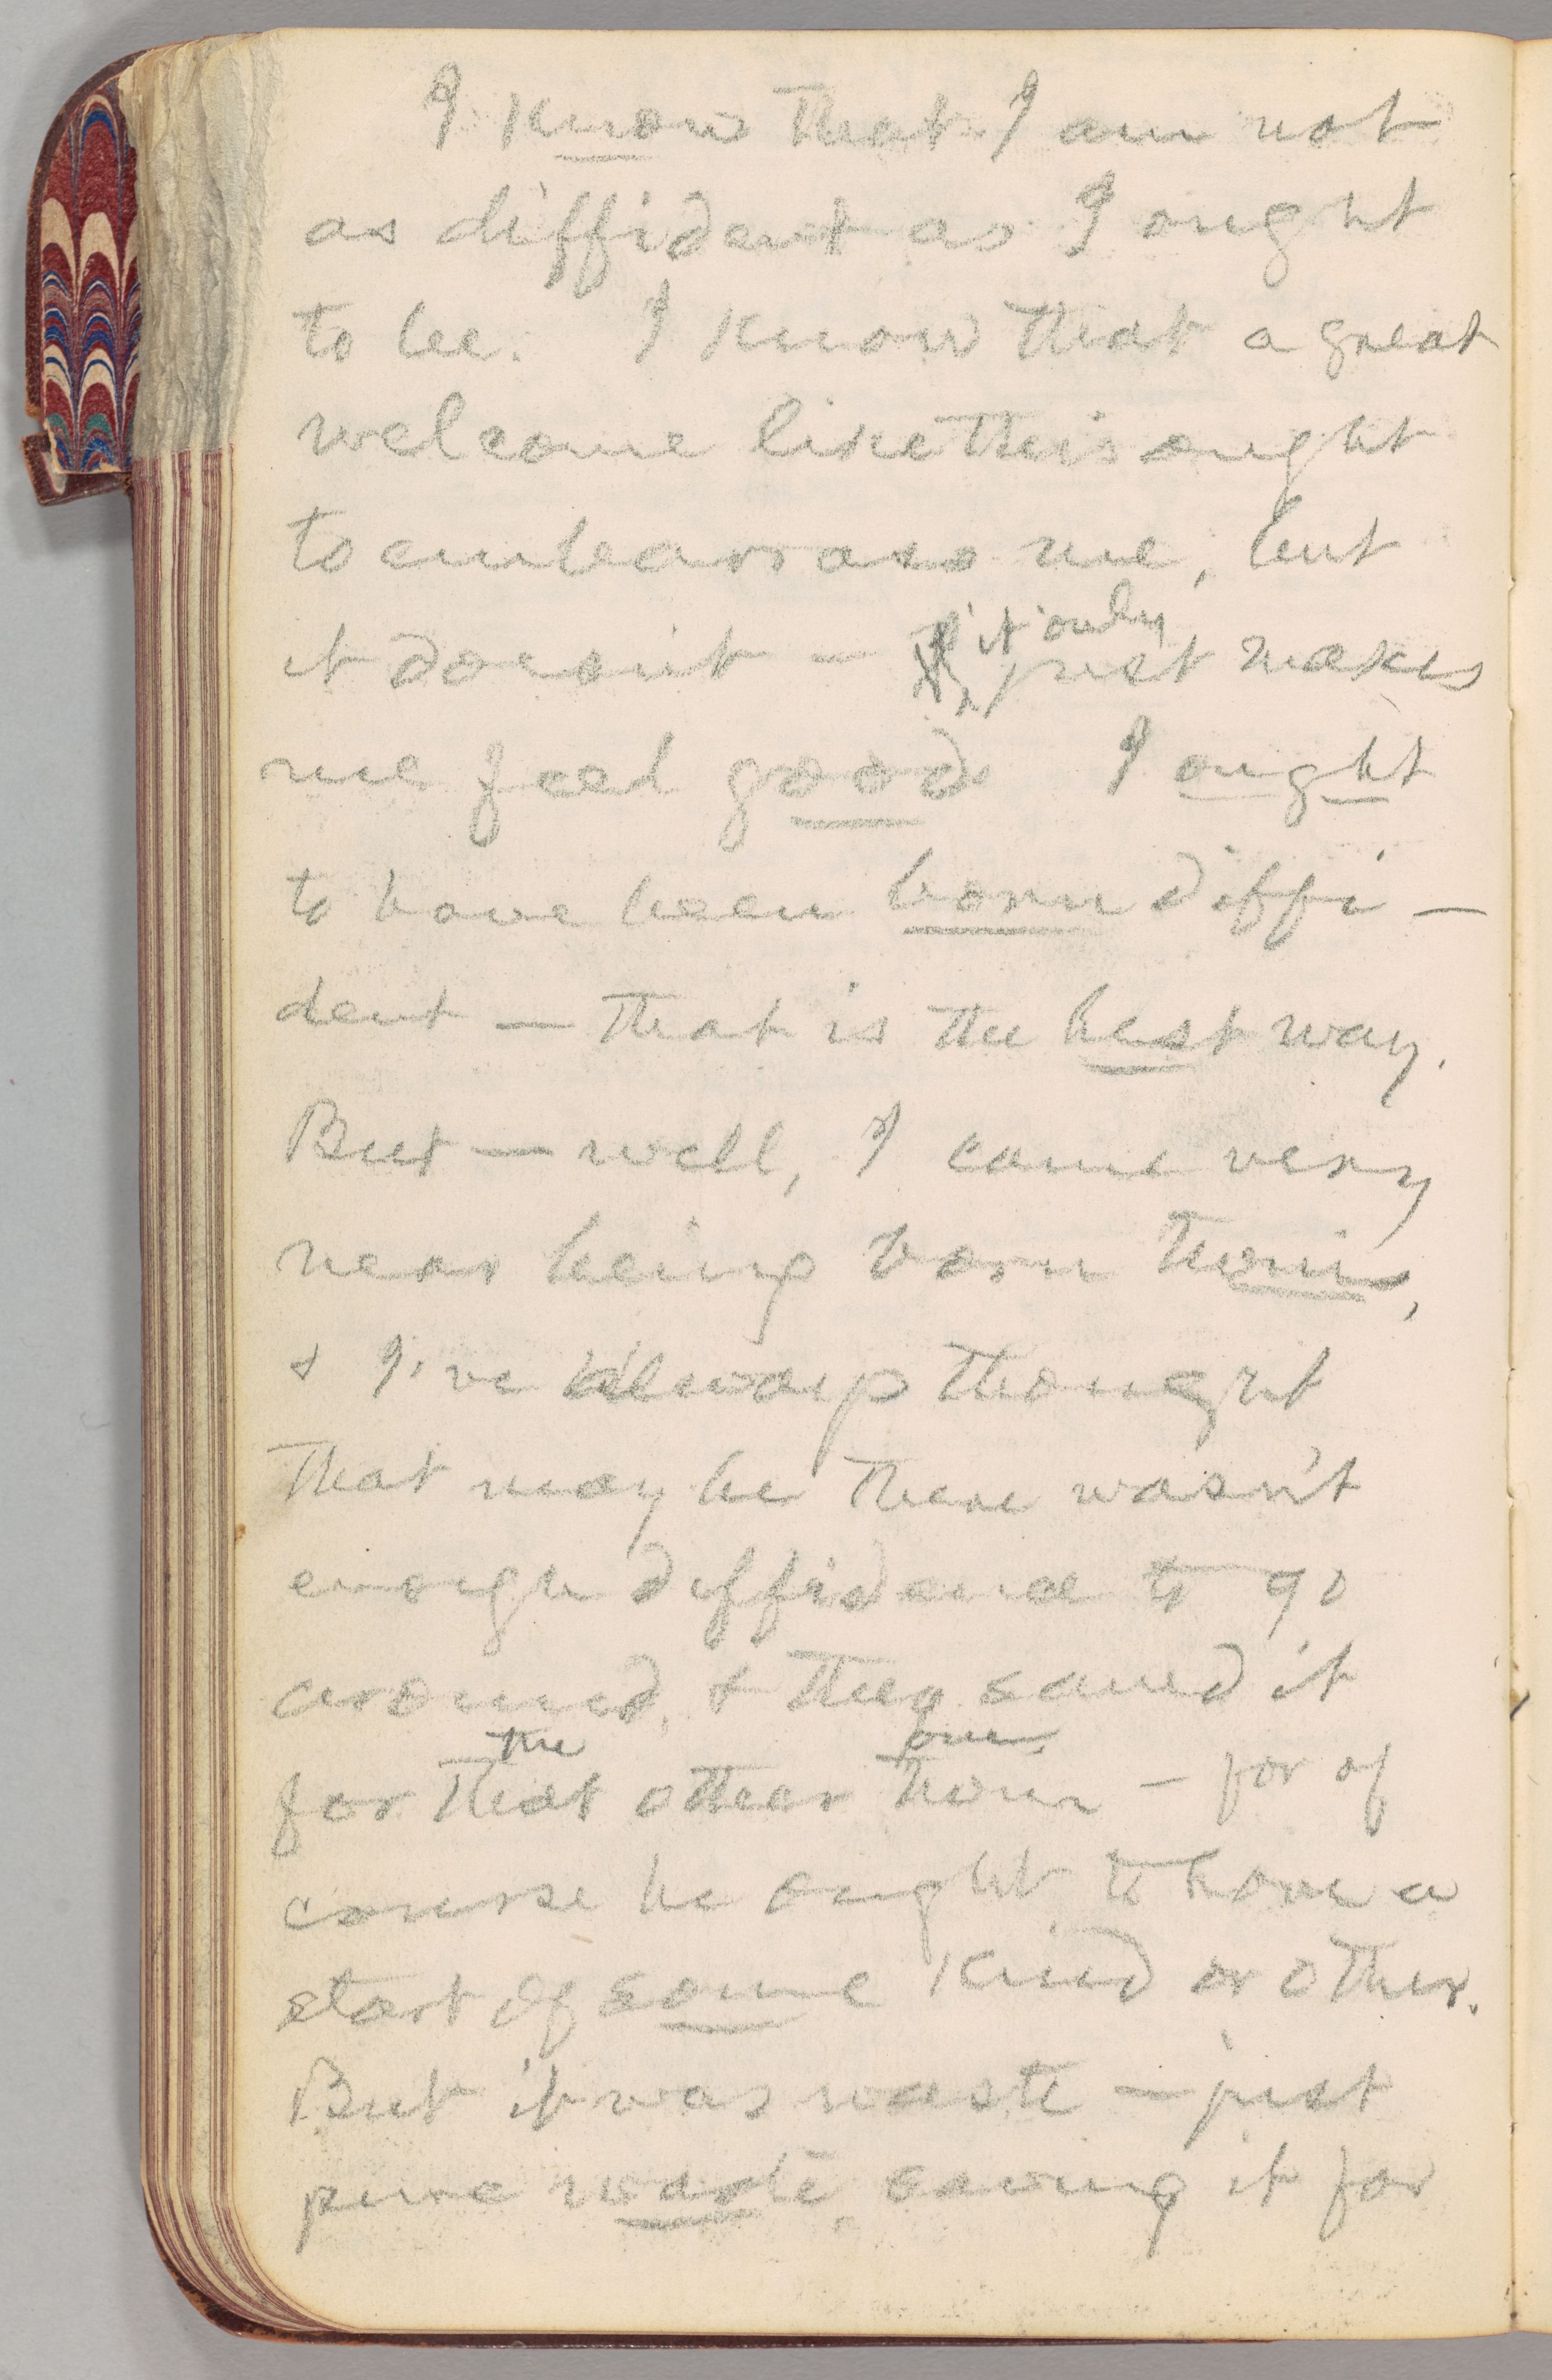 I know that I am not
as diffident as I ought
to be. I know that a great
welcome like this ought
to embarrass me, but
it only
it doesn't — just makes
me feel good I ought
to have been born diffi-
dent — that is the best way.
But — well, I came very
near being born twins,
& I've always thought
that maybe there wasn't
enough diffidence to go
around, & they saved it
the one
for that other twin — for of
course he ought to have a
start of some kind or other.
But it was waste — just
pure waste, saving it for